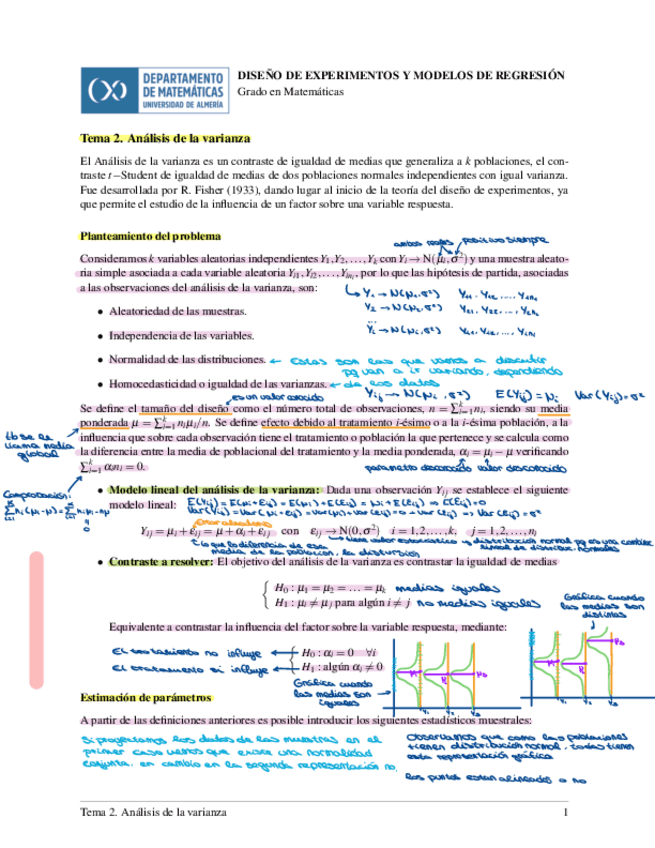 DEPARTAMENTO
DE MATEMÁTICAS
UNIVERSIDAD DE ALMERÍA
DISEÑO DE EXPERIMENTOS Y MODELOS DE REGRESIÓN
Grado en Matemáticas
Tema 2. Análisis de la varianza
El Análisis de la varianza es un contraste de igualdad de medias que generaliza a k poblaciones, el con-
traste t−Student de igualdad de medias de dos poblaciones normales independientes con igual varianza.
Fue desarrollada por R. Fisher (1933), dando lugar al inicio de la teoría del diseño de experimentos, ya
que permite el estudio de la influencia de un factor sobre una variable respuesta.
Planteamiento del problema
ambos reales positivo siempre
Consideramos k variables aleatorias independientes Y₁,Y₂,…,Yₖ con Yᵢ → N(μᵢ,σ²) y una muestra aleato-
ria simple asociada a cada variable aleatoria Yᵢ₁,Yᵢ₂,…,Yᵢₙᵢ, por lo que las hipótesis de partida, asociadas
a las observaciones del análisis de la varianza, son:
Y₁ → N(μ₁,σ²) Y₁₁, Y₁₂, ..., Y₁ₙ₁
• Aleatoriedad de las muestras.
Y₂ → N(μ₂,σ²) Y₂₁, Y₂₂, ..., Y₂ₙ₂
...
Yᵢ → N(μᵢ,σ²) Yᵢ₁, Yᵢ₂, ..., Yᵢₙᵢ
• Independencia de las variables.
• Normalidad de las distribuciones. ← estas son las que vamos a discutir
pq van a ir variando, dependiendo
• Homocedasticidad o igualdad de las varianzas. ← de los datos
es un valor conocido
Yᵢⱼ → N(μᵢ, σ²) E(Yᵢⱼ) = μᵢ Var(Yᵢⱼ) = σ²
Se define el tamaño del diseño como el número total de observaciones, n = ∑ᵏᵢ₌₁ nᵢ, siendo su media
ponderada μ = ∑ᵏᵢ₌₁ nᵢμᵢ/n. Se define efecto debido al tratamiento i-ésimo o a la i-ésima población, a la
influencia que sobre cada observación tiene el tratamiento o población la que pertenece y se calcula como
la diferencia entre la media de poblacional del tratamiento y la media ponderada, αᵢ = μᵢ − μ verificando
∑ᵏᵢ₌₁ αᵢnᵢ = 0.
llama media
global
parámetro desconocido valor desconocido
Comprobación:
• Modelo lineal del análisis de la varianza: Dada una observación Yᵢⱼ se establece el siguiente
modelo lineal:
E(Yᵢⱼ) = E(μᵢ+εᵢⱼ) = E(μᵢ) + E(εᵢⱼ) = μᵢ + E(εᵢⱼ) ⇒ E(εᵢⱼ) = 0
Error aleatorio
Yᵢⱼ = μᵢ + εᵢⱼ = μ + αᵢ + εᵢⱼ con εᵢⱼ → N(0,σ²) i = 1,2,…,k, j = 1,2,…,nᵢ
media de la población
• Contraste a resolver: El objetivo del análisis de la varianza es contrastar la igualdad de medias
H₀ : μ₁ = μ₂ = … = μₖ medias iguales
H₁ : μᵢ ≠ μⱼ para algún i ≠ j no medias iguales
Gráfica cuando
las medias son
distintas
Equivalente a contrastar la influencia del factor sobre la variable respuesta, mediante:
El tratamiento no influye ← H₀ : αᵢ = 0 ∀i
El tratamiento si influye ← H₁ : algún αᵢ ≠ 0
Gráfica cuando
las medias son
iguales
Estimación de parámetros
A partir de las definiciones anteriores es posible introducir los siguientes estadísticos muestrales:
Si proyectamos los datos de las muestras en el
primer caso vemos que existe una normalidad
conjunta, en cambio en la segunda representación no.
Observamos que como las poblaciones
tienen distribución normal, todas tienen
esta representación gráfica
los puntos están alineados o no
Tema 2. Análisis de la varianza 1